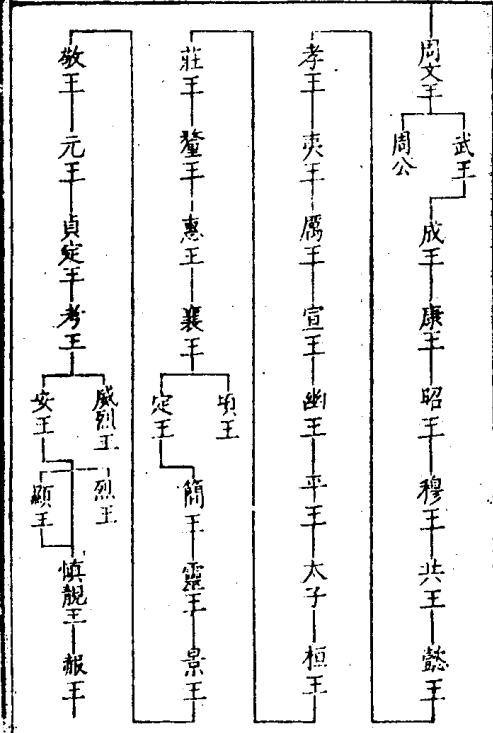 周文王
武王
周公
成王
康王
昭王
穆王
共王
懿王
孝王
夷王
厲王
宣王
幽王
平王
太子
桓王
莊王
釐王
惠王
襄王
頃王
定王
簡王
靈王
景王
敬王
元王
貞定王
考王
威烈王
安王
烈王
顯王
慎靚王
赧王